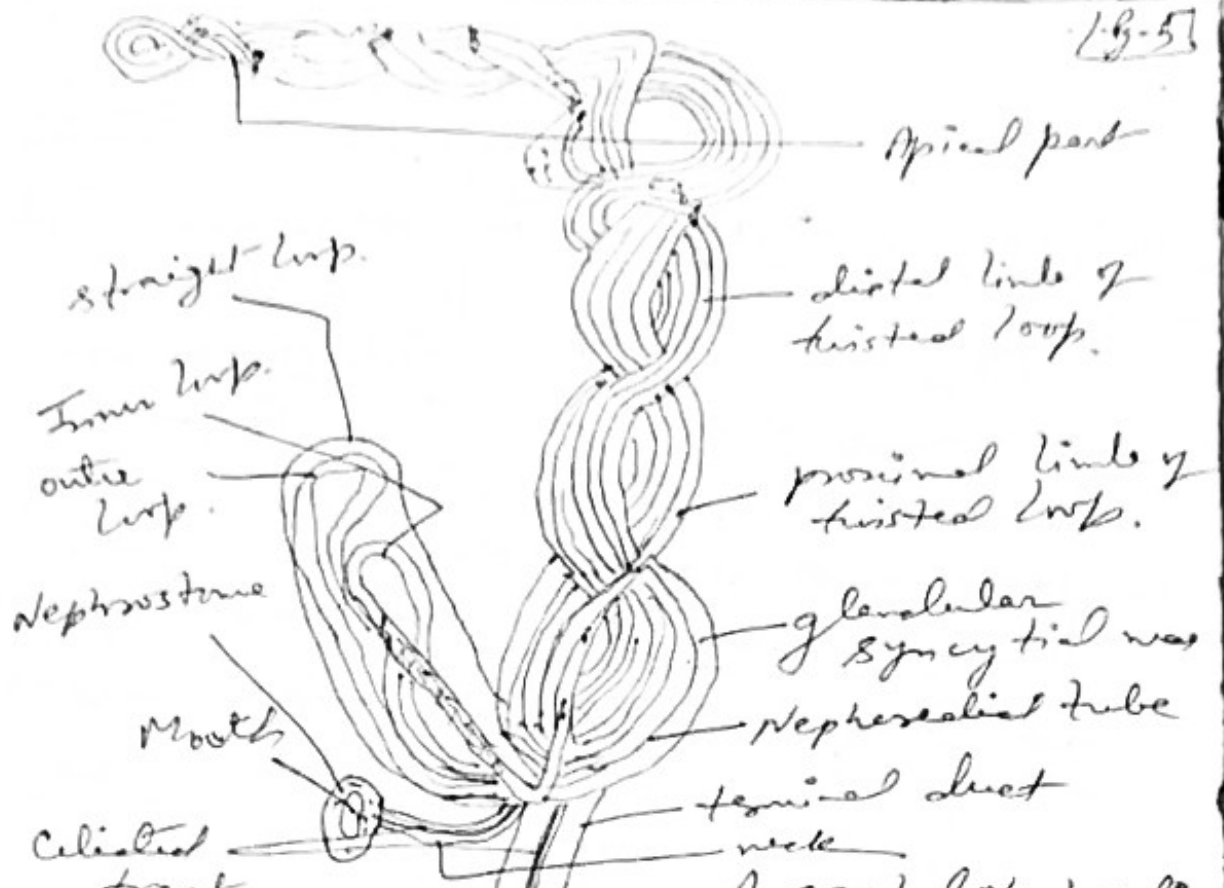 Pg-5
Apical part
straight loop.
distal limb of
twisted loop.
Inner loop.
outer
loop.
proximal limb of
twisted loop.
Nephrostome
glandular
syncytial mass
Nephridial tube
Mouth
terminal duct
Ciliated
neck
tract